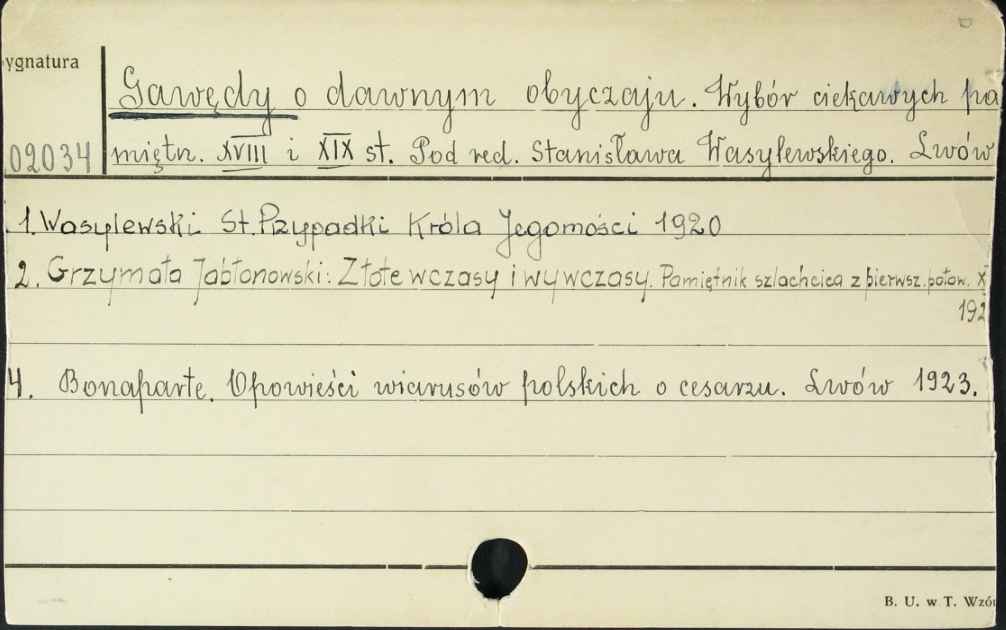 ygnatura
Gawędy o dawnym obyczaju. Wybór ciekawych pa
02034 miętn. XVIII i XIX st. Pod red. Stanisława Wasylewskiego. Lwów
1. Wasylewski St. Przypadki Króla Jegomości 1920
2. Grzymała Jabłonowski: Złote wczasy i wywczasy. Pamiętnik szlachcica z pierwsz. połow. X
192
4. Bonaparte. Opowieści wiarusów polskich o cesarzu. Lwów 1923.
B. U. w T. Wzó